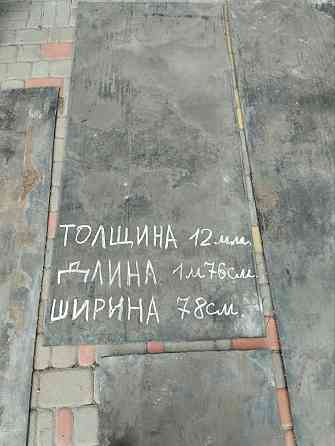 ТОЛЩИНА 12мм.
ДЛИНА 1м76см.
ШИРИНА 78см.